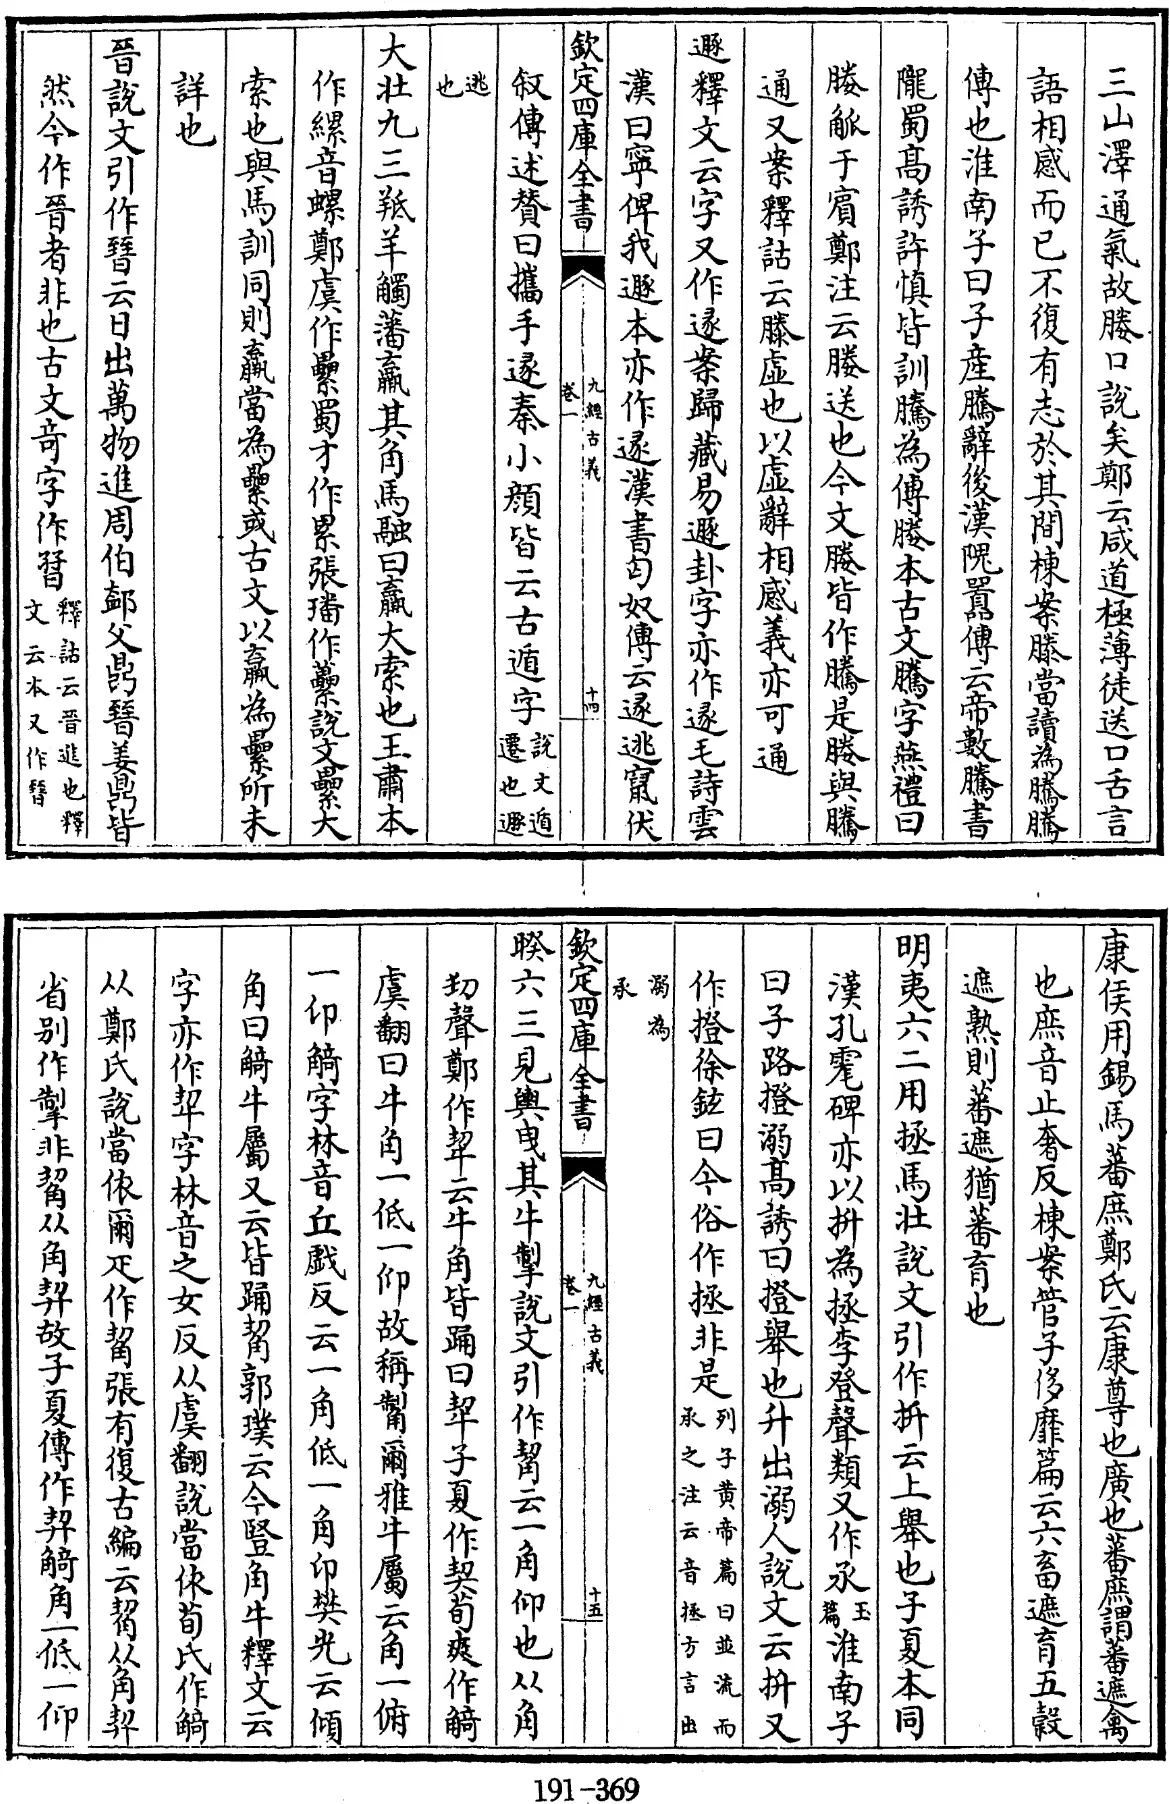 三山澤通氣故媵口說矣鄭云咸道極薄徒送口舌言
語相感而已不復有志於其間棟案滕當讀為騰騰
傳也淮南子曰子產騰辭後漢隗囂傳云帝數騰書
隴蜀高誘許慎皆訓騰為傳媵本古文騰字燕禮曰
媵觚于賓鄭注云媵送也今文媵皆作騰是媵與騰
通又案釋詁云滕虛也以虛辭相感義亦可通
遯釋文云字又作遂案歸藏易遯卦字亦作遂毛詩雲
漢曰寧俾我遯本亦作遂漢書匈奴傳云遂逃竄伏
欽定四庫全書
九經古義
卷一
十四
叙傳述贊曰攜手遂秦小顔皆云古遁字說文遁遷也遯
逃也
大壯九三羝羊觸藩羸其角馬融曰羸大索也王肅本
作縲音螺鄭虞作纍蜀才作累張璠作虆說文纍大
索也與馬訓同則羸當為纍或古文以羸為纍所未
詳也
晉說文引作㬜云日出萬物進周伯郄父鼎㬜姜鼎皆
然今作晉者非也古文奇字作㬜釋詁云晉進也釋文云本又作㬜
康侯用錫馬蕃庶鄭氏云康尊也廣也蕃庶謂蕃遮禽
也庶音止奢反棟案管子侈靡篇云六畜遮育五穀
遮熟則蕃遮猶蕃育也
明夷六二用拯馬壯說文引作抍云上舉也子夏本同
漢孔霓碑亦以抍為拯李登聲類又作氶玉篇淮南子
曰子路撜溺高誘曰撜舉也升出溺人說文云抍又
作撜徐鉉曰今俗作拯非是列子黄帝篇曰並流而承之注云音拯方言出
溺為承
欽定四庫全書
九經古義
卷一
十五
睽六三見輿曳其牛掣說文引作觢云一角仰也从角
㓞聲鄭作挈云牛角皆踊曰挈子夏作契荀爽作觭
虞翻曰牛角一低一仰故稱觢爾雅牛屬云角一俯
一仰觭字林音丘戲反云一角低一角仰樊光云傾
角曰觭牛屬又云皆踊觢郭璞云今豎角牛釋文云
字亦作挈字林音之女反从虞翻說當依荀氏作觭
从鄭氏說當依爾疋作觢張有復古編云觢从角契
省别作掣非觢从角契故子夏傳作契觭角一低一仰
191-369